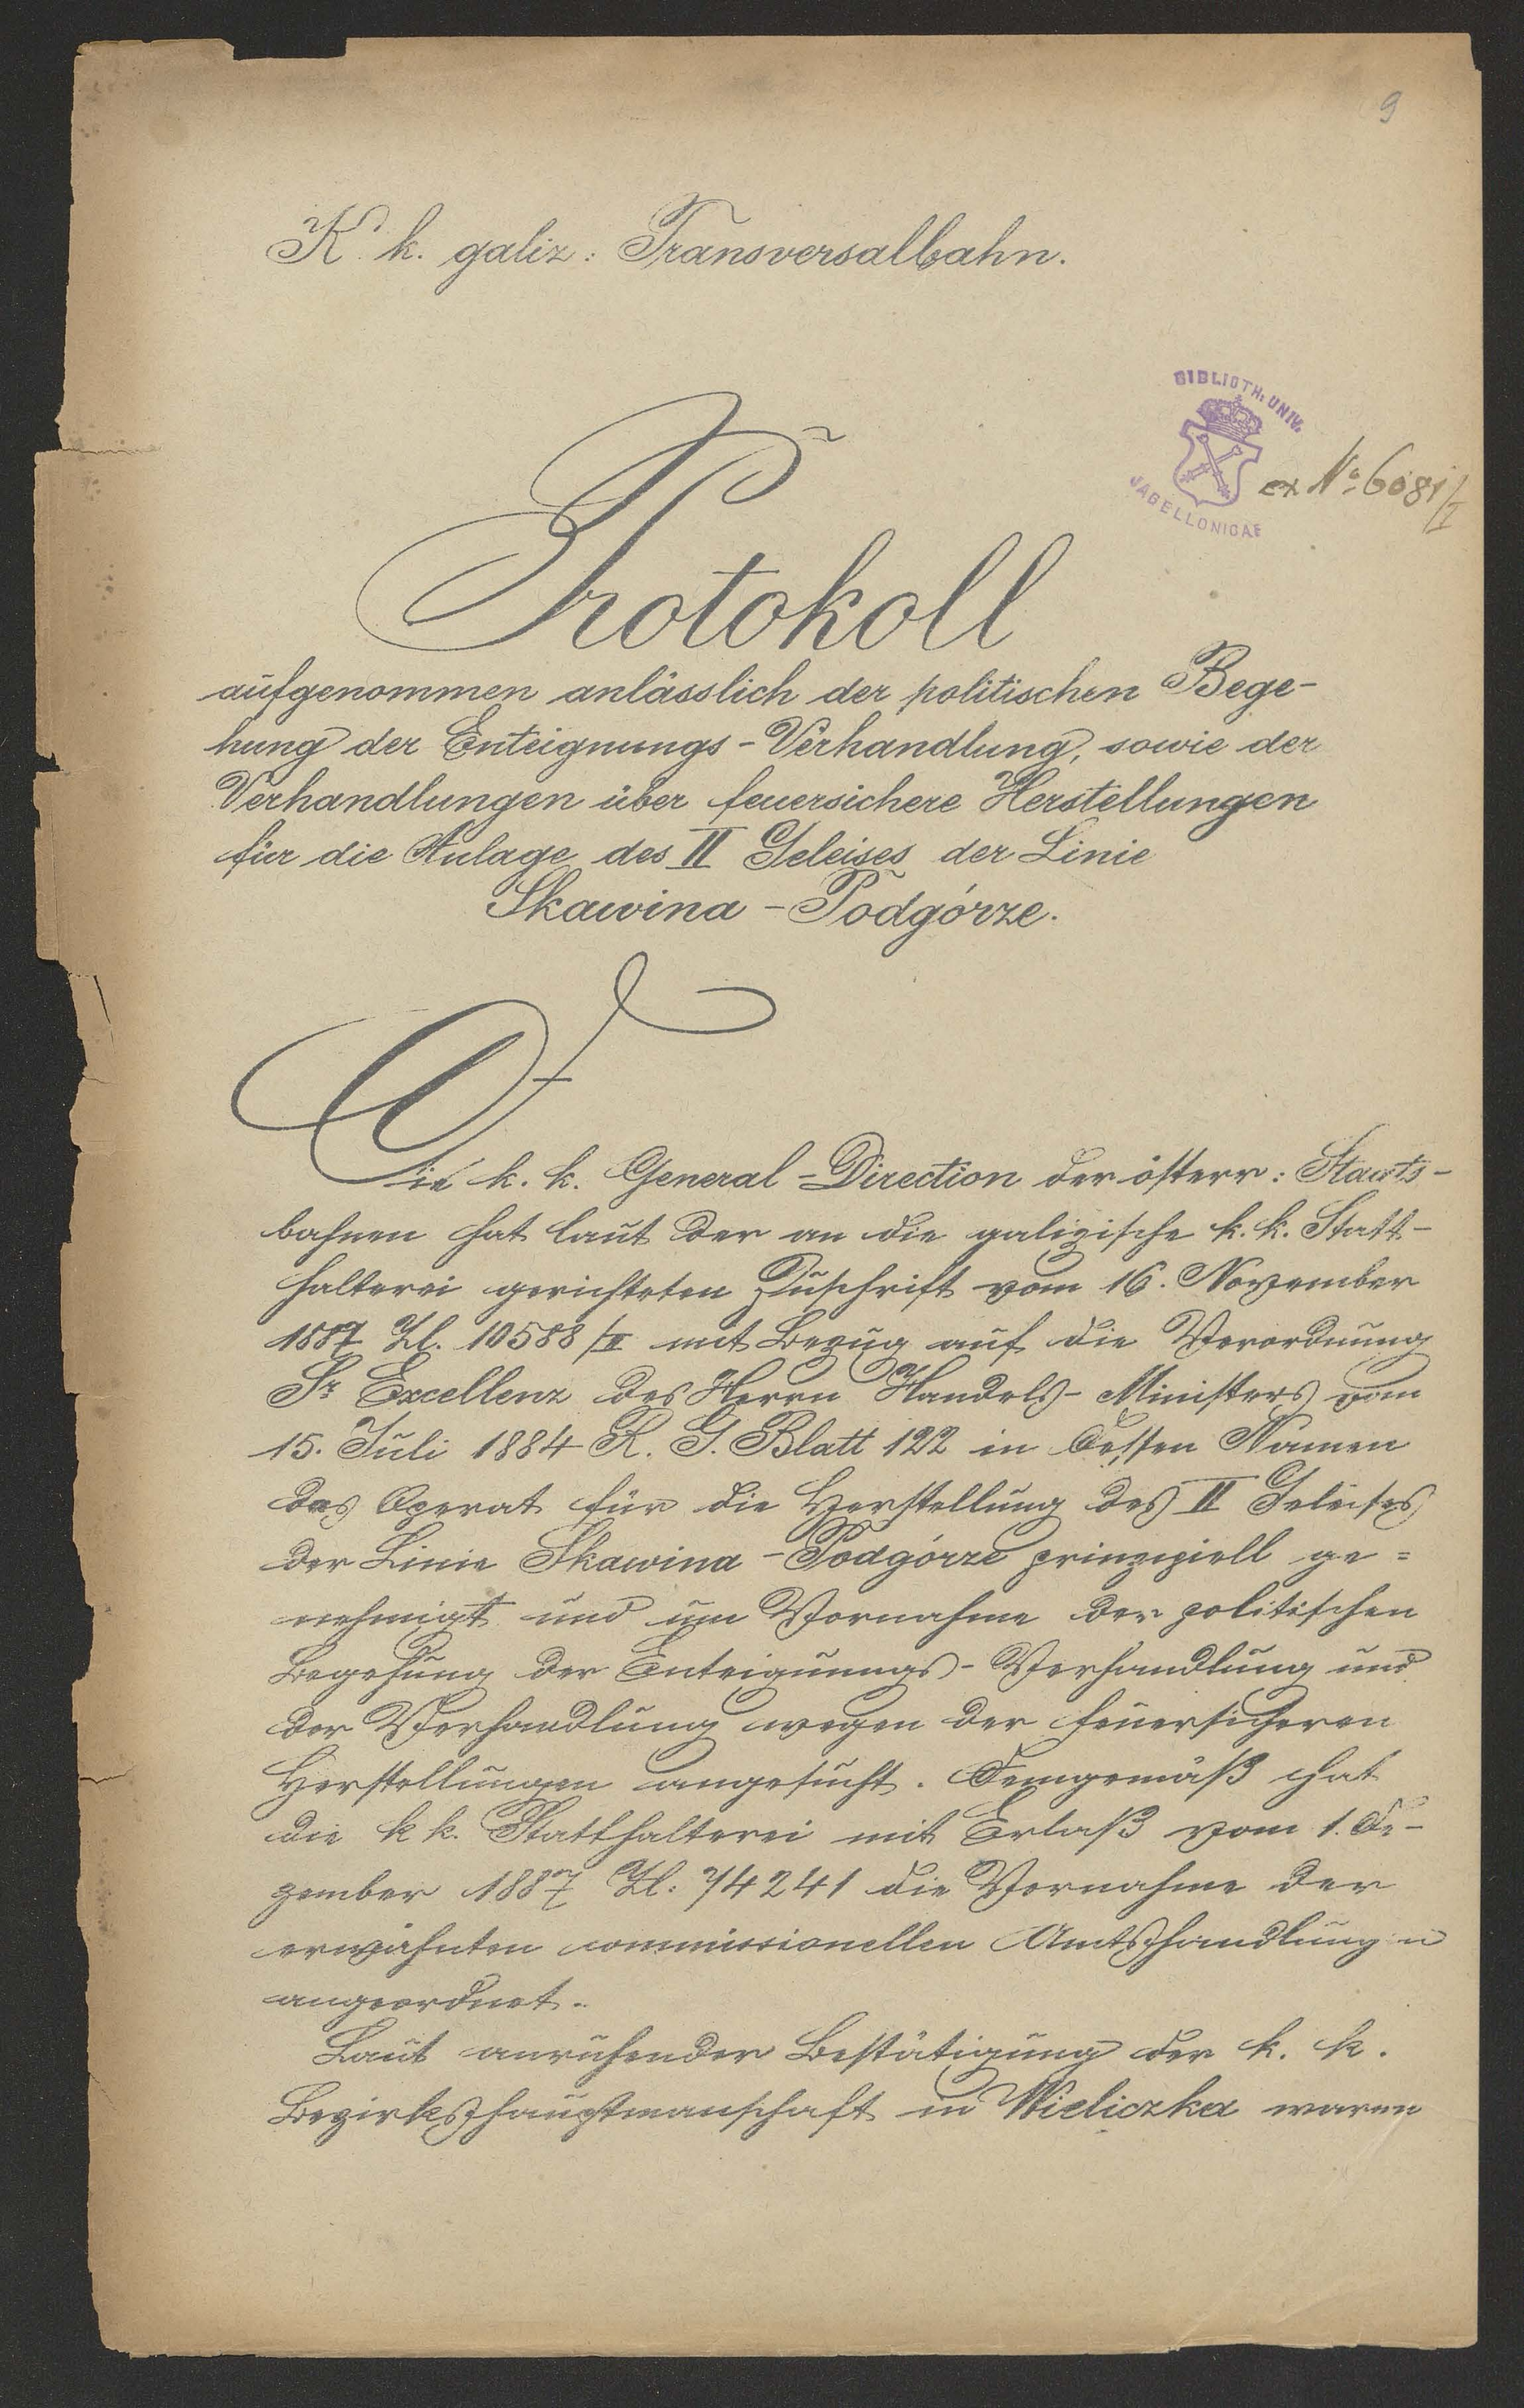 9
K. k. galiz: Transversalbahn.
BIBLIOTH. UNIV.
JAGELLONICAE
ex No 6081/I
Protokoll
aufgenommen anlässlich der politischen Bege-
hung der Enteignungs-Verhandlung, sowie der
Verhandlungen über feuersichere Herstellungen
für die Anlage des II Geleises der Linie
Skawina - Podgórze.
Die k. k. General-Direction der österr: Staats-
bahnen hat laut der an die galizische k. k. Statt-
halterei gerichteten Zuschrift vom 16. November
1887 Zl. 10588/II mit Bezug auf die Verordnung
Sr Excellenz des Herrn Handels-Ministers vom
15. Juli 1884 R. G. Blatt 122 in dessen Namen
das Operat für die Herstellung des II Geleises
der Linie Skawina - Podgórze prinzipiell ge=
nehmigt und um Vornahme der politischen
Begehung der Enteignungs-Verhandlung und
der Verhandlung wegen der feuersicheren
Herstellungen angesucht. Demgemäß hat
die k k. Statthalterei mit Erlaß vom 1. De-
zember 1887 Zl: 74241 die Vornahme der
erwähnten commissionellen Amtshandlungen
angeordnet.
Laut anruhender Bestätigung der k. k.
Bezirkshauptmanschaft in Wieliczka waren